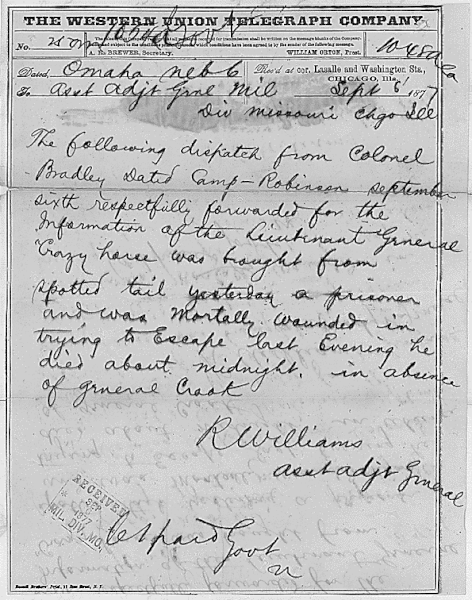 THE WESTERN UNION TELEGRAPH COMPANY.
A. R. BREWER, Secretary. WILLIAM ORTON, Prest.
No.
Dated, Omaha Neb 6 Rec'd at cor. Lasalle and Washington Sts.,
CHICAGO, Ills. Sept 6 1877
To Asst Adjt Gnrl Mil
Div Missouri Chgo Ill
The following dispatch from Colonel
Bradley Dated Camp-Robinson September
sixth respectfully forwarded for the
Information of the Lieutenant General
Crazy horse was brought from
spotted tail yesterday a prisoner
and was Mortally wounded in
trying to Escape last Evening he
died about midnight. in absence
of general Crook
R Williams
asst adjt General
RECEIVED
SEP
1877
MIL. DIV. MO.
paid Govt